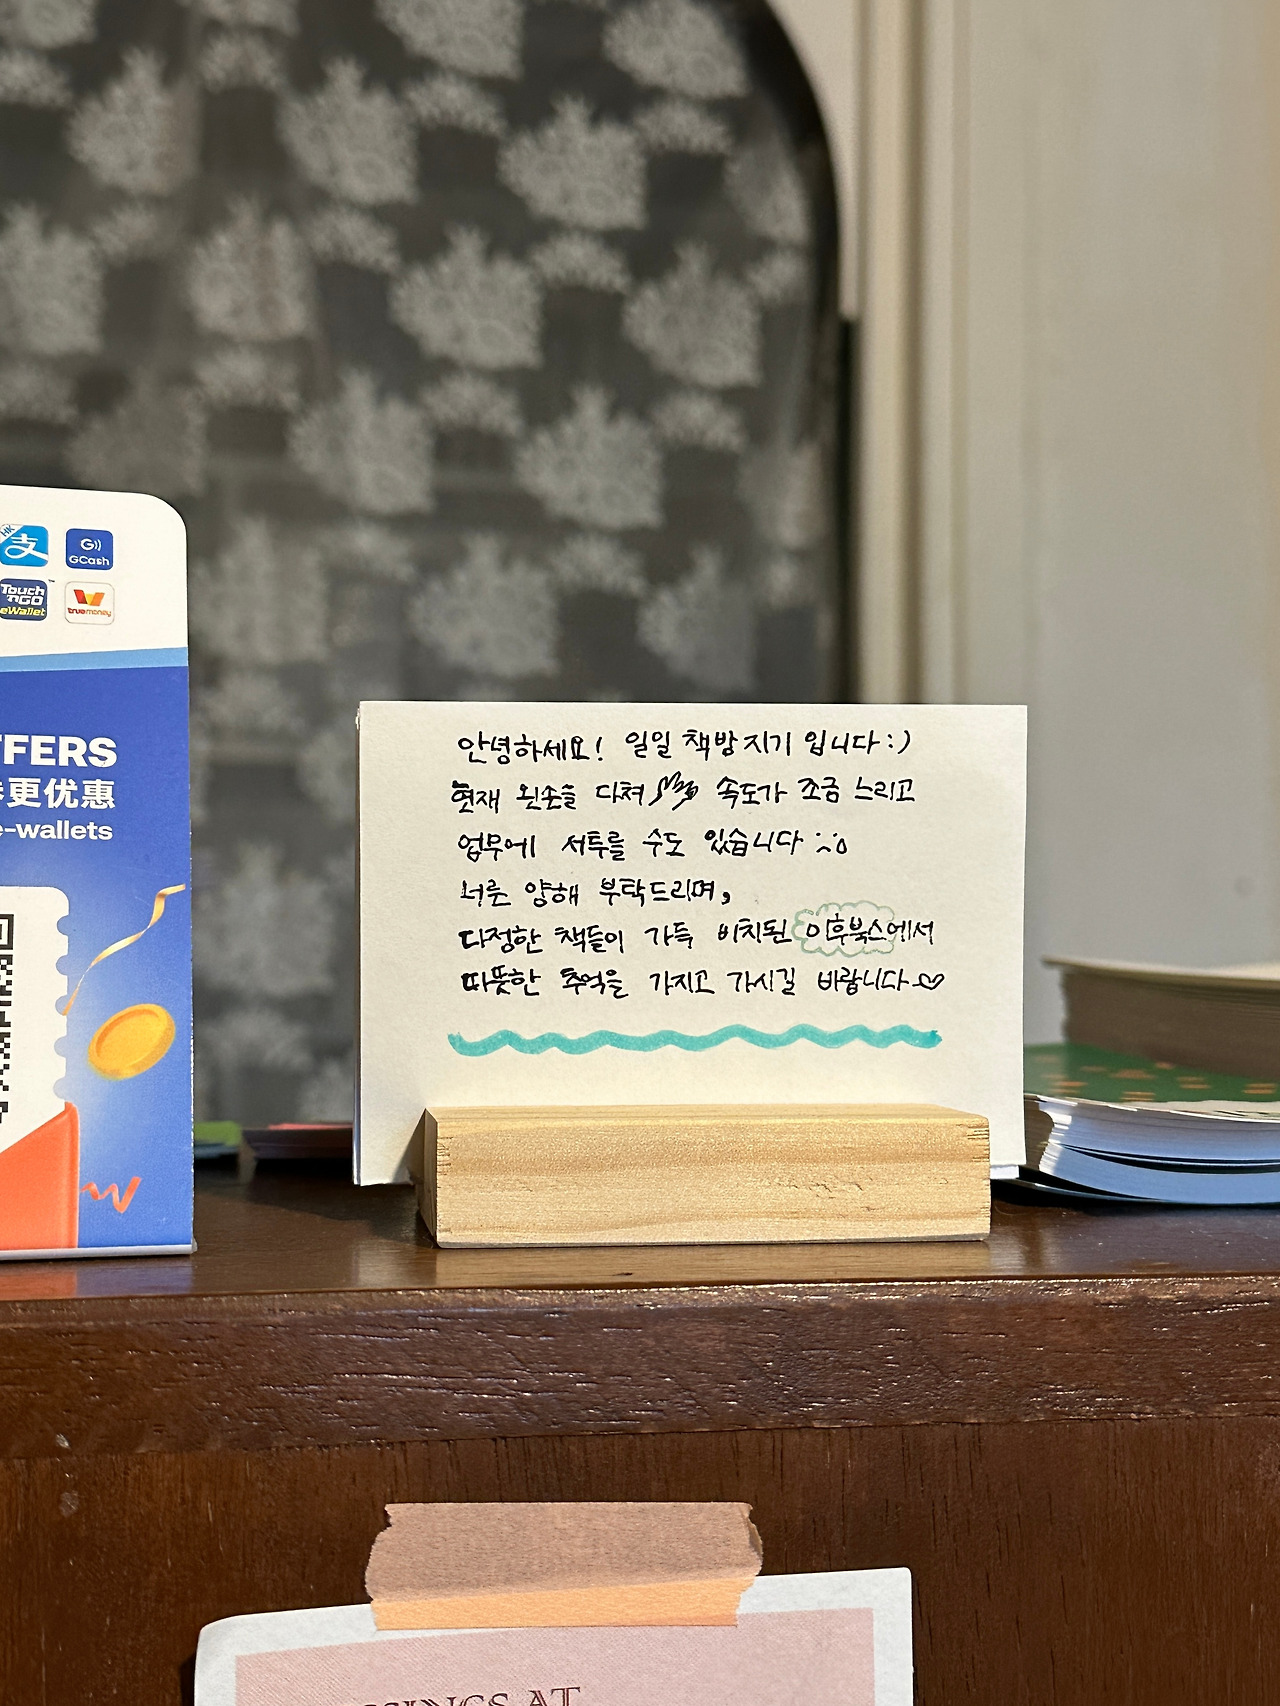 HK
支
G
GCash
Touch
'nGO
eWallet
truemoney
FFERS
更优惠
e-wallets
안녕하세요! 일일 책방지기 입니다 :)
현재 왼손을 다쳐 속도가 조금 느리고
업무에 서투를 수도 있습니다
너른 양해 부탁드리며,
다정한 책들이 가득 비치된 이후북스에서
따뜻한 추억을 가지고 가시길 바랍니다 ♡
AT